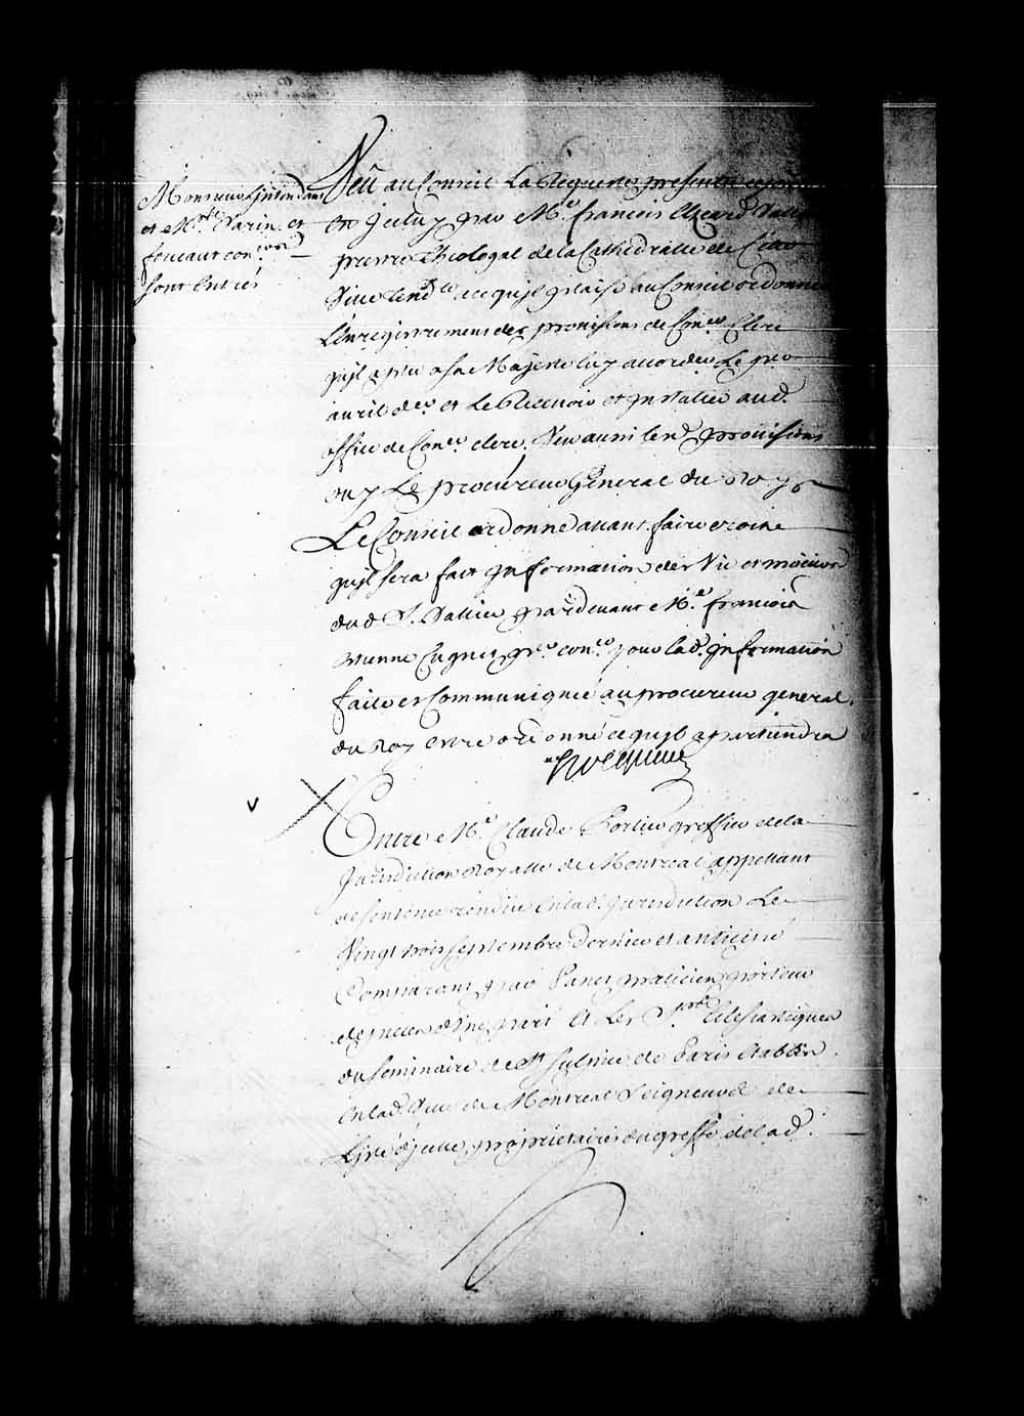 Monsieur L'jntendant
et Mrs Varin et
foucaut con.ers
sont Entrés
Veu au Conseil La Requeste presentée
En Jceluy par Me francois Elzeard Vallier
prestre Theologal de la Cathedralle de
tend.te ace qu'jl plaise au Conseil ordonner
L'enregistrement des provisions de Con.er Clerc
qu'jl a plu a sa Majesté luy accorder Le pr.er
avril d.er et Le Recevoir et jnstaller aud.
office de Con.er clerc. Veu aussi lesd. provisions
ouy Le procureur General du Roy
Le Conseil ordonne avant faire droit
qu'jl sera fait jnformation des Vie et moeurs
dud S. Vallier pardevant Me. francois
Etienne Cugnet pr.er con.er pour lad. jnformation
faite et Communiquée au procureur general
du Roy estre ordonné ce qu'jl appartiendra
Hocquart
Entre Me. Claude Porlier greffier de la
Jurisdiction Royalle de Montreal appellant
de sentence rendüe en lad. jurisdiction Le
Vingt trois septembre dernier et anticipé
Comparant par Panet praticien porteur
de pieces d'une part Et Les Srs Eclesiastiques
du seminaire de St sulpice de Paris Etablis
en lad. Ville de Montreal Seigneurs de
L'jsle propriétaires du greffe de lad.